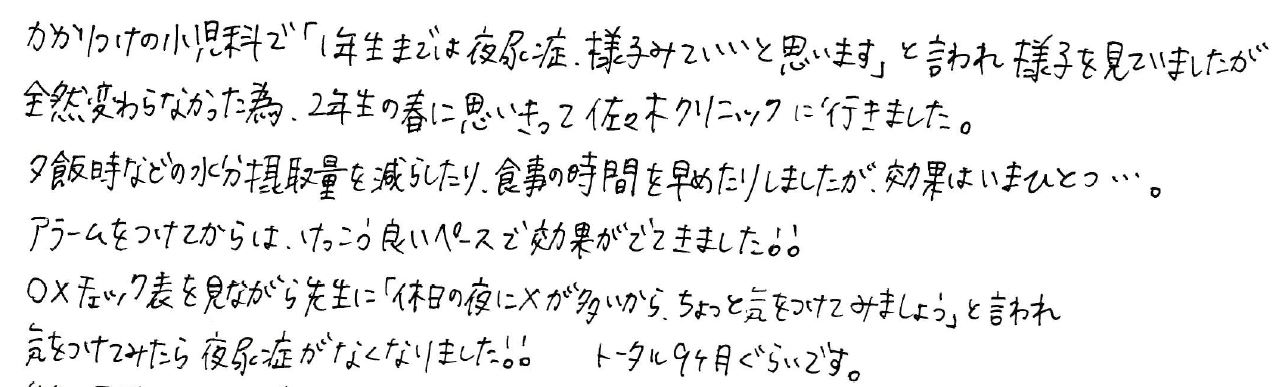 かかりつけの小児科で「1年生までは夜尿症、様子みていいと思います」と言われ 様子を見ていましたが
全然変わらなかった為、2年生の春に思いきって佐々木クリニックに行きました。
夕飯時などの水分摂取量を減らしたり、食事の時間を早めたりしましたが、効果はいまひとつ…。
アラームをつけてからは、けっこう良いペースで効果がでてきました!!
○×チェック表を見ながら先生に「休日の夜に×が多いから、ちょっと気をつけてみましょう」と言われ
気をつけてみたら夜尿症がなくなりました!! トータル9ヶ月ぐらいです。